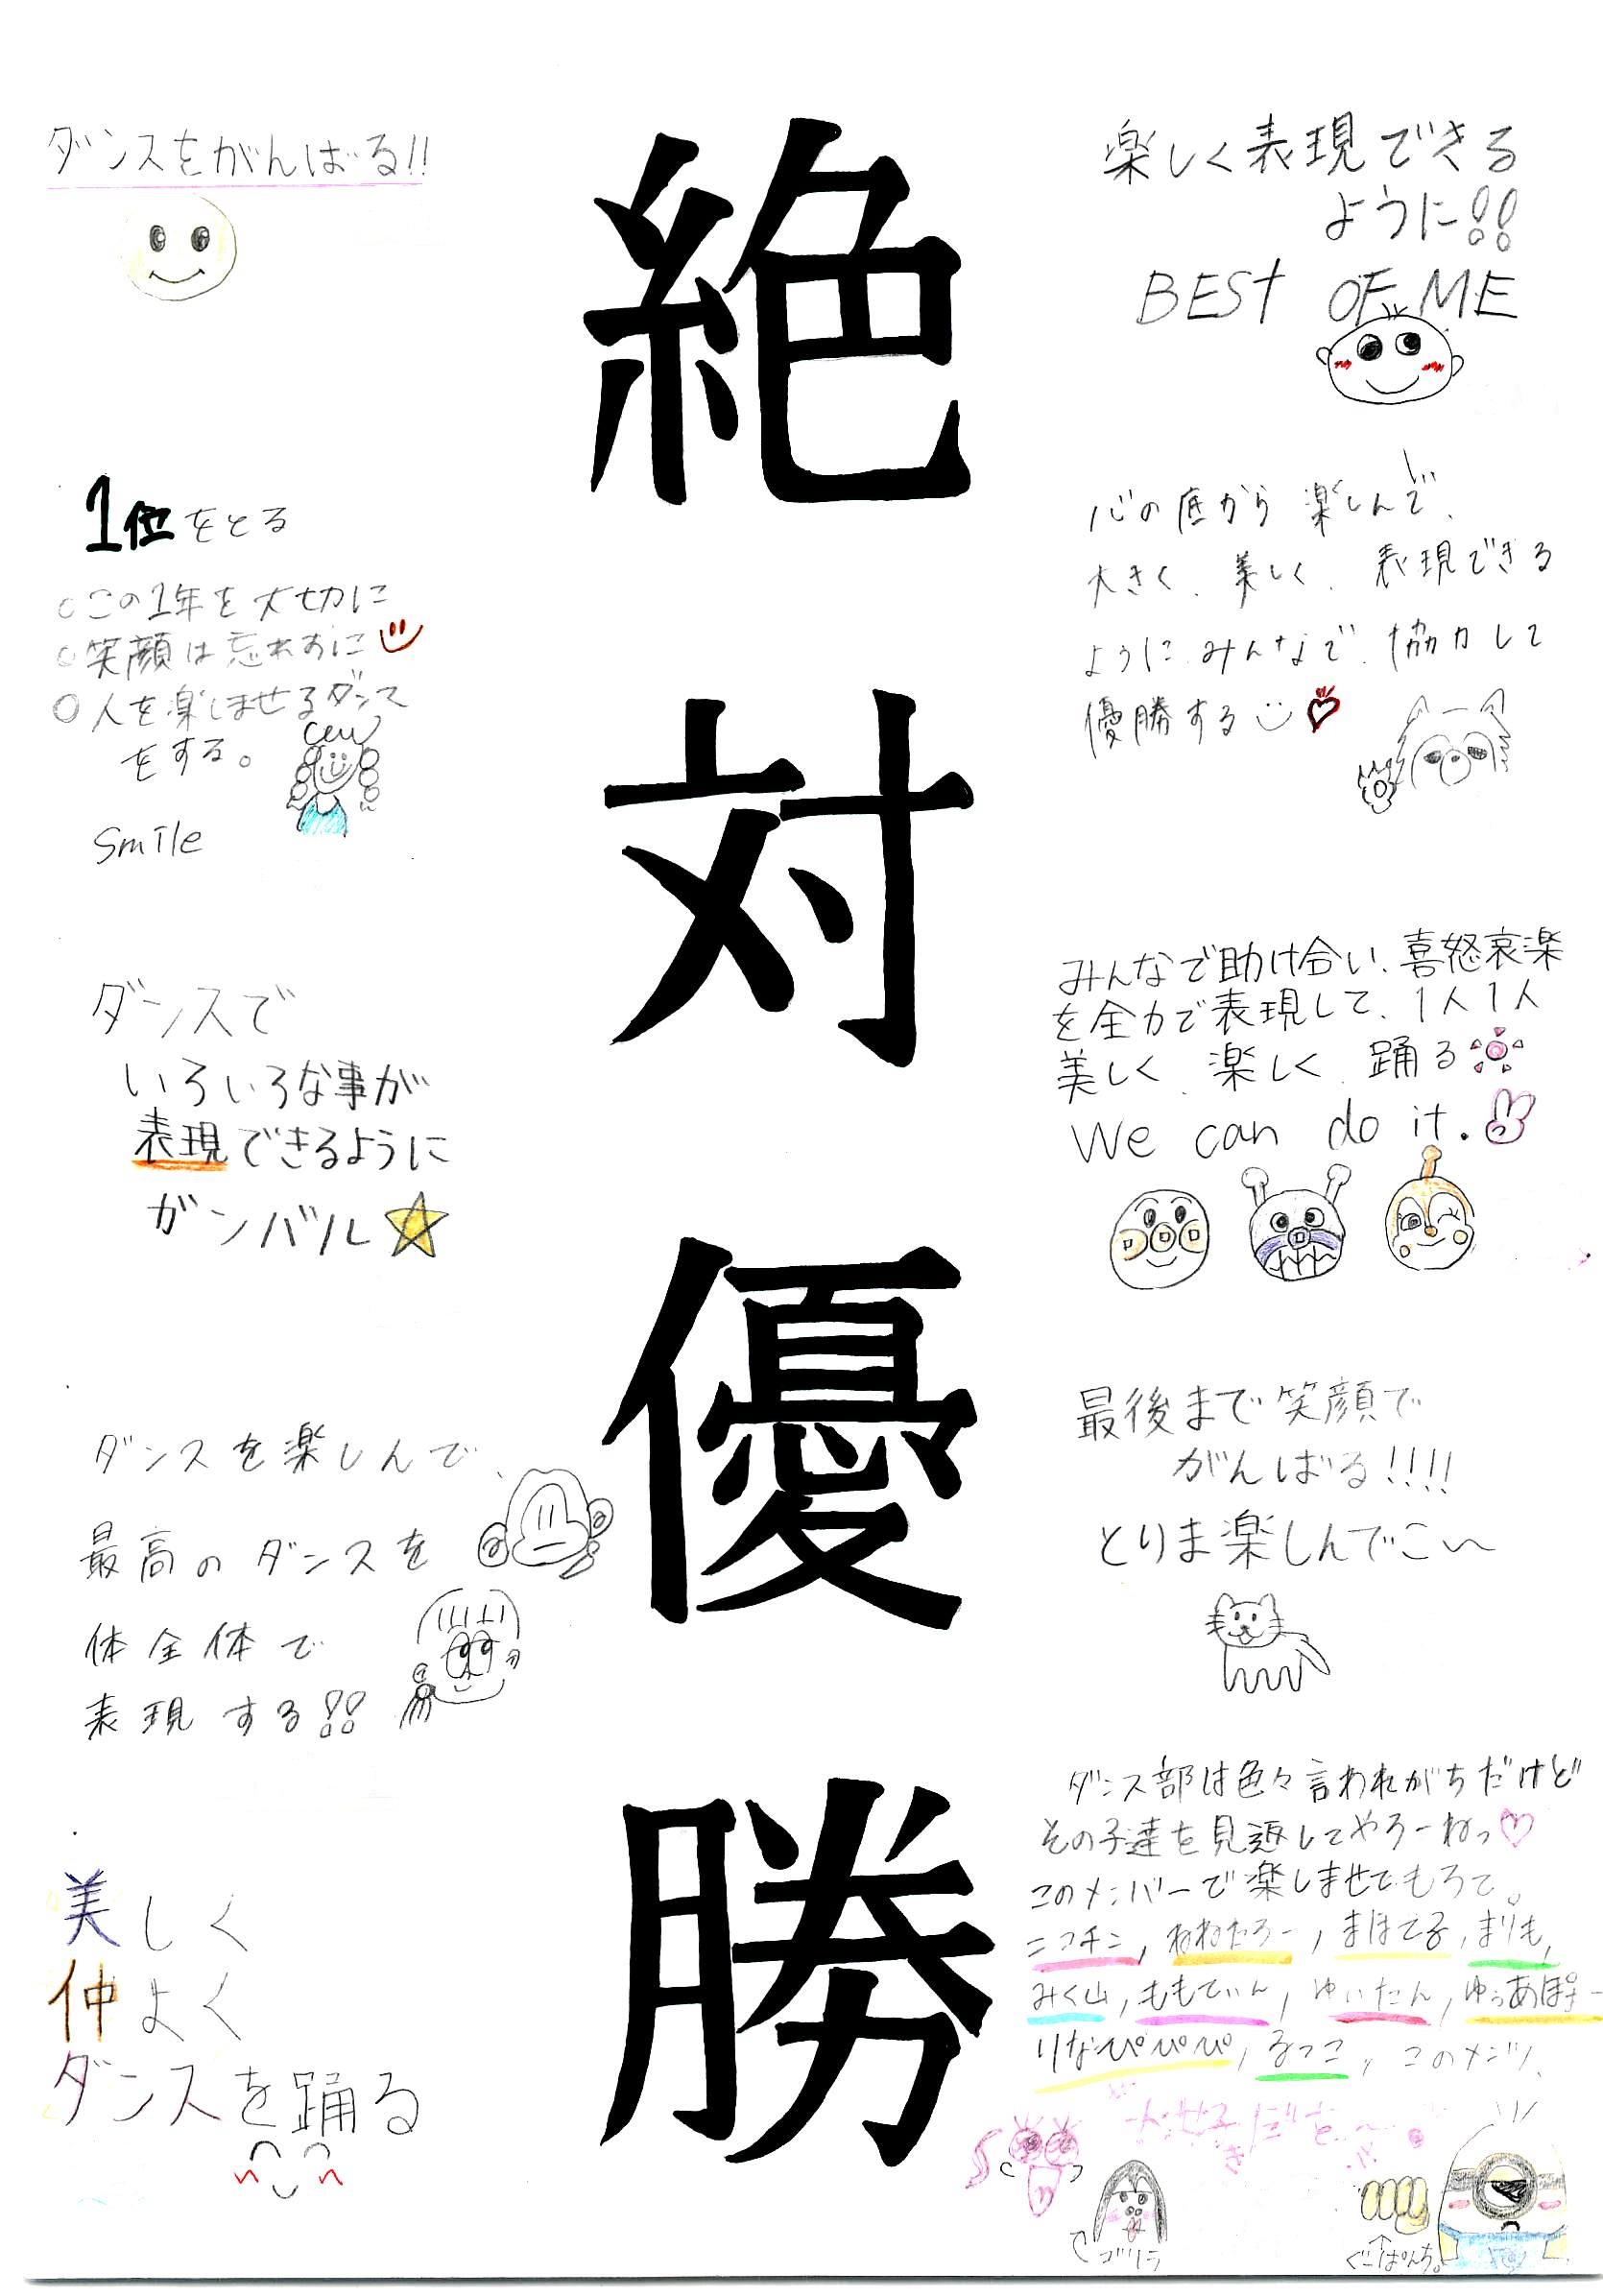 絶対優勝
楽しく表現できる
ように!!
BEST OF ME
心の底から楽しんで、
大きく、美しく、表現できる
ようにみんなで協力して
優勝する
みんなで助け合い、喜怒哀楽
を全力で表現して、1人1人
美しく、楽しく、踊る
We can do it.
最後まで笑顔で
がんばる!!!!
とりま楽しんでこ〜
ダンス部は色々言われがちだけど
その子達を見返してやろーねっ♡
このメンバーで楽しませてもろて。
ニコチン, ねねたろー, まほて子, まりも,
みく山, ももてぃん, ゆいたん, ゆぅあぽ
りなぴぴぴ, るっこ, このメンツ、
ゴリラ
ぐーぱんち。
ダンスをがんばる!!
1位をとる
○この1年を大切に
○笑顔は忘れずに
○人を楽しませるダンス
をする。
Smile
ダンスで
いろいろな事が
表現できるように
ガンバル☆
ダンスを楽しんで、
最高のダンスを
体全体で
表現する!!
美しく
仲よく
ダンスを踊る